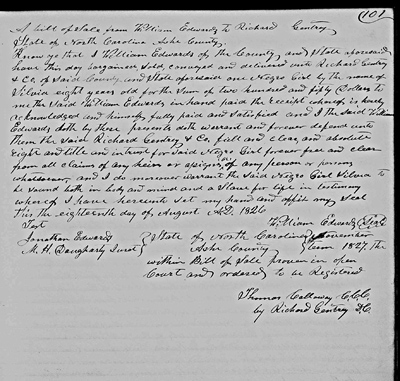 (101
A bill of Sale from William Edwards to Richard Gentry
State of North Carolina Ashe County.
Know ye that I William Edwards of the County and State aforesaid
have this day bargained, sold, conveyed and delivered unto Richard Gentry
& Co. of said County and State aforesaid one Negro Girl by the name of
Silvia eight years old for the Sum of two hundred and fifty Dollars to
me the said William Edwards in hand paid the receipt whereof is hereby
acknowledged and himself fully paid and satisfied and I the said William
Edwards doth by these presents doth warrant and forever defend unto
them the said Richard Gentry & Co. full and clear, and absolute
Right and Title and interest for said Negro Girl forever free and clear
from all claims of any heirs or assigns, or of any person or persons
whatsoever, and I do moreover warrant the said Negro Girl Silvia to
be sound both in body and mind and a Slave for life in testimony
whereof I have hereunto set my hand and affix my Seal
this the eighteenth day of August A.D. 1826
William Edwards (Seal)
Test
Jonathan Edwards
M. H. Daugharty Jurat
State of North Carolina November
Ashe County Term 1827 the
within Bill of Sale proven in open
Court and ordered to be Registered
Thomas Calloway C.C.C.
by Richard Gentry D.C.